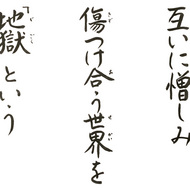 互いに憎しみ
傷つけ合う世界を
「地獄」という